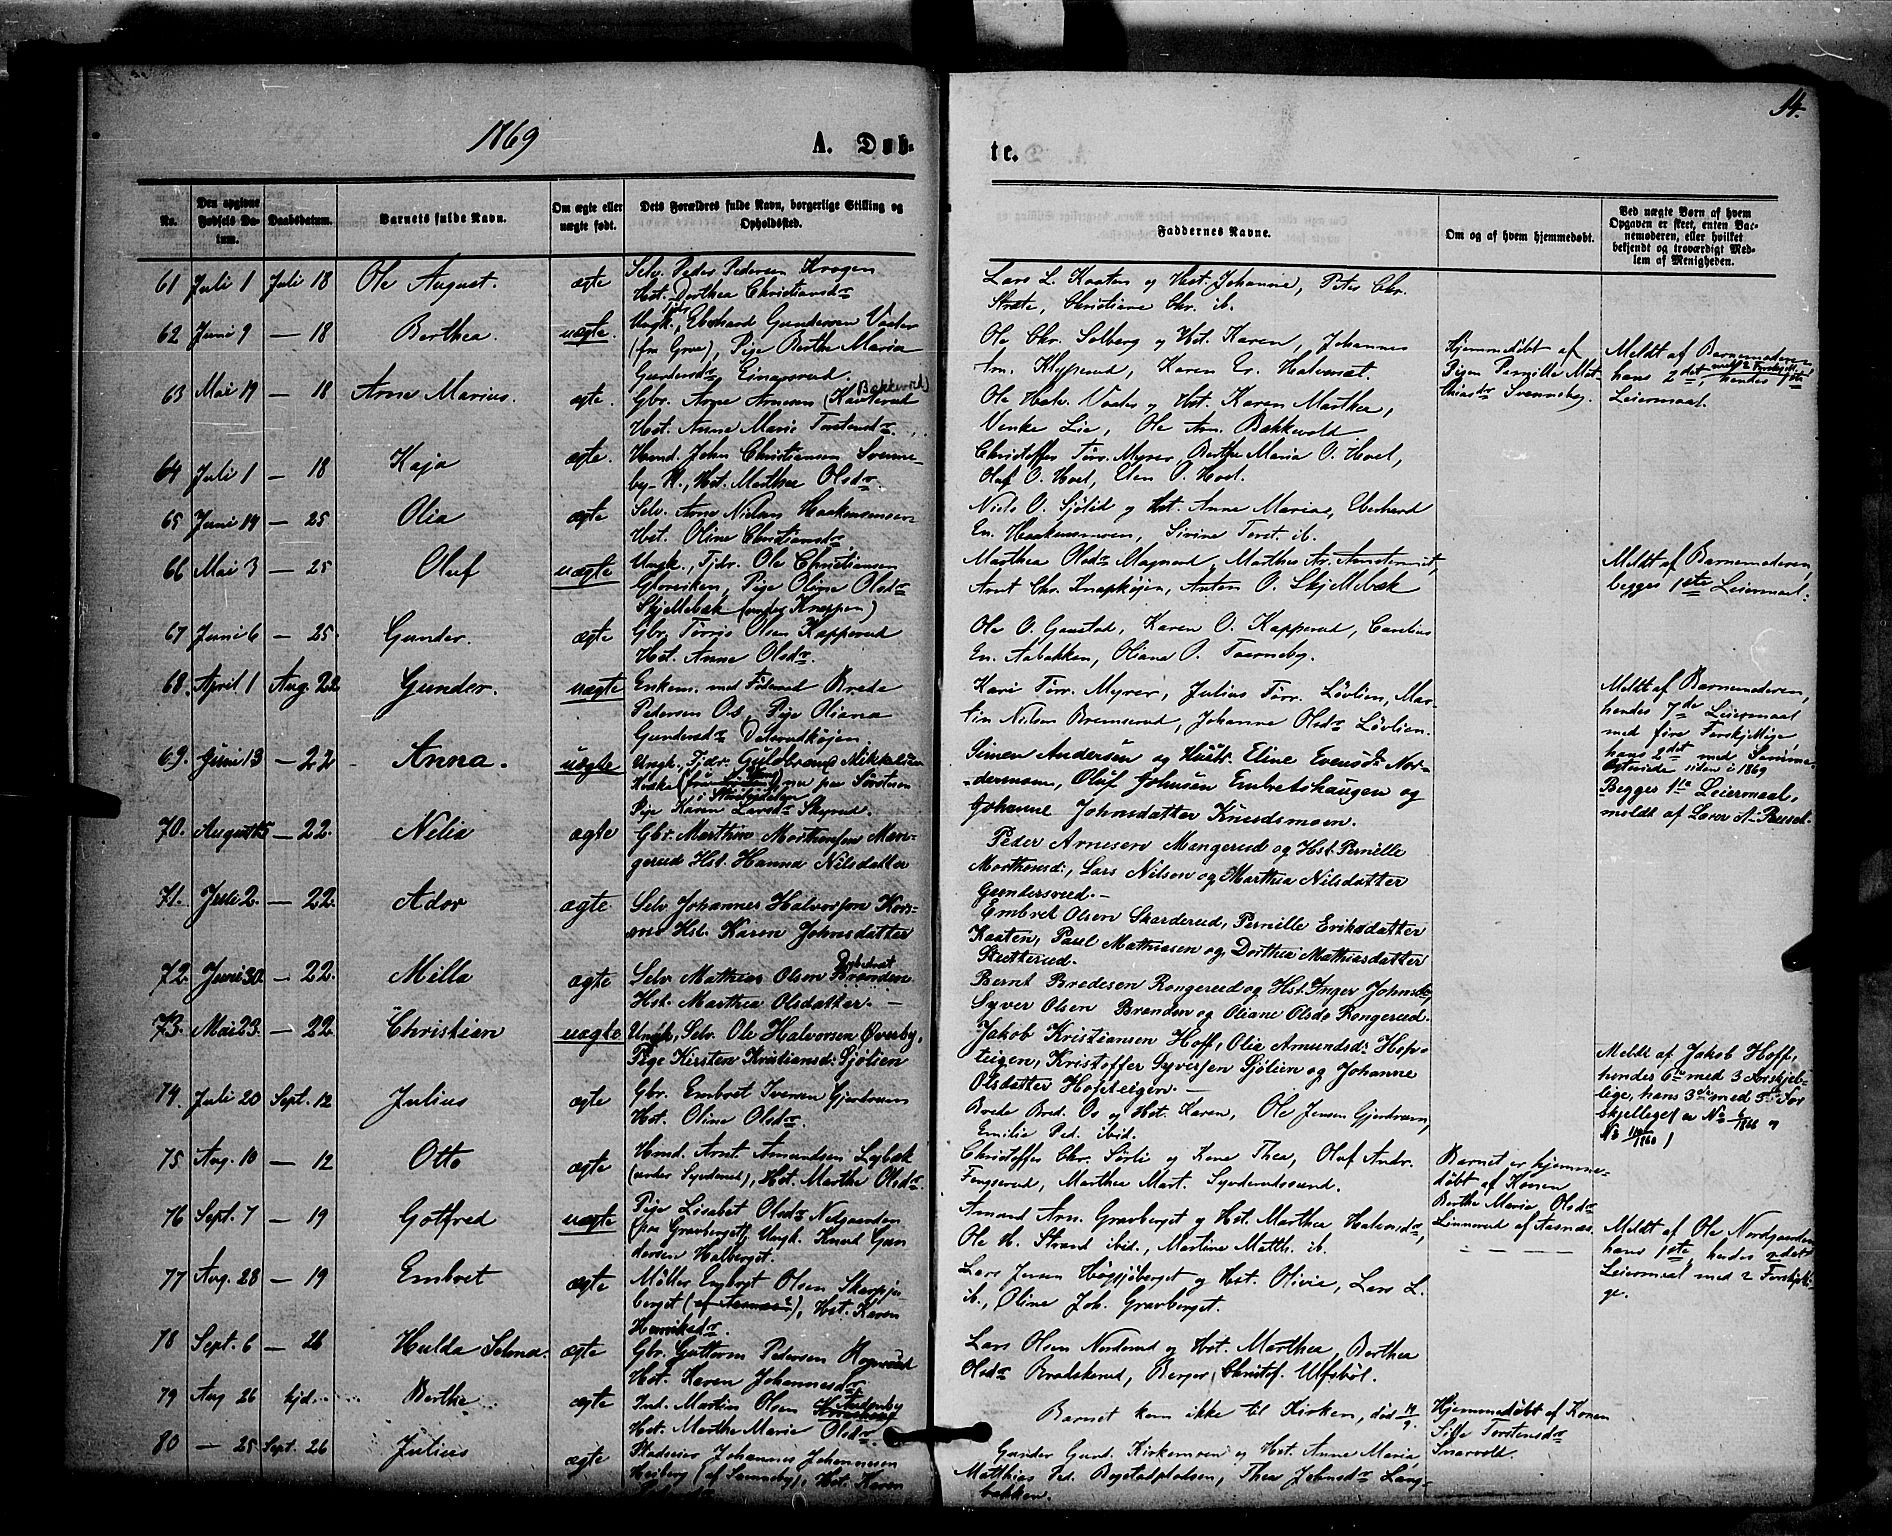 14.
1869
A. Døb-
te.
No.
Den opgivne Fødsels Da-
tum.
Daabsdatum.
Barnets fulde Navn.
Om ægte eller
uægte født.
Dets Forældres fulde Navn, borgerlige Stilling og
Opholdssted.
Faddernes Navne.
Om og af hvem hjemmedøbt.
Ved uægte Børn af hvem
Opgaven er skeet, enten Bar-
nemoderen, eller hvilket
bekjendt og troværdigt Med-
lem af Menigheden.
61 Juli 1 Juli 18 Ole August. ægte
Selv. Peder Pedersen Krogen
Hst. Dorthea Christiansdr
Lars L. Kaaten og Hst. Johanne, Peter Chr.
Stræte, Christiane Chr. ib.
62 Juni 9 — 18 Berthea. uægte.
Ungk., Eberhard Gundersen Vaaler
(fra Grue), Pige Berthe Maria
Gundersdr Einarsrud.
Ole Chr. Solberg og Hst. Karen, Johannes
Karen Er. Halvorsæt.
Hjemmedøbt af
Pigen Pernille Mat-
thiasdr Svenneby.
Meldt af Barnemoderen,
hans 2det med 2 Forskjell., hendes 1ste
Leiermaal.
63 Mai 19 — 18 Arne Marius. ægte.
Gbr. Arne Arnesen (Bakkevold)
Hst. Anne Marie Torstensdr.
Ole Halv. Vaaler og Hst. Karen Marthea,
Venke Lie, Ole Arn. Bakkevold
64 Juli 1 — 18 Kaja ægte.
Hmd. John Christiansen Svenne-
by-N., Hst. Marthea Olsdr.
Christoffer Torr. Myrer, Berthe Maria O. Hoel,
Oluf O. Hoel, Elen O. Hoel.
65 Juni 14 — 25 Olia ægte
Selv. Arne Nielsen Haakensmoen
Hst. Oline Christiansdr
Niels O. Sjølid og Hst. Anne Marias, Eberhard
En. Haakensmoen, Sirine Torst. ib.
66 Mai 3 — 25 Oluf uægte
Ungk., Tjdr. Ole Christiansen
Gbrviken, Pige Oline Olsdr
Skjellebæk (under Knappen)
Marthea Olsdr Magnord, Marthea Ar.
Arnt Chr. Knapkøien, Anton O. Skjellebæk
Meldt af Barnemoderen,
begges 1ste Leiermaal.
67 Juni 6 — 25. Gunder. ægte
Gbr. Torris Olsen Kapperud
Hst. Anne Olsdr.
Ole O. Gaustad, Karen O. Kapperud, Carelius
En. Aabakken, Oliane O. Taarneby.
68 April 1 Aug. 22 Gunder. uægte
Enkem. med Føderaad Brede
Pedersen Os, Pige Oliana
Gundersdr Dalsrudkøien.
Kari Torr. Myrer, Julius Torr. Løvlien, Mar-
tin Nilsen Bremserud, Johanne Olsdr Løvlien.
Meldt af Barnemoderen,
hendes 7de Leiermaal
med fire Forskjellige,
hans 2det med Samme.
69. Juni 13 — 22 Anna. uægte
Ungk., Tjdr. Guldbrand Mikkelsen
Pige Karen Larsdr Skyrud.
Simen Andersen og Hustr. Eline Evensdr Nor-
dermoen, Oluf Johnsen Embretshaugen og
Johanne Johnsdatter Knudsmoen.
Begges 1ste Leiermaal,
meldt af Lars A.
70. August 5 — 22. Nelia ægte
Gbr. Marthin Marthinsen Man-
gerud Hst. Hanna Nilsdatter
Peder Arnesen Mangerud og Hst. Pernille
Morthensd., Lars Nilsen og Marthea Nilsdatter
Gundersrud.
71. Juli 2. — 22. Ador ægte
Selv Johannes Halvorsen Kors-
mo Hst. Karen Johnsdatter
Embret Olsen Skarderud, Pernille Eriksdatter
Kaaten, Paul Mathiasen og Dorthea Mathiasdatter
Skutterud.
72. Juni 30. — 22. Milla ægte
Selv Mathias Olsen Branden
Hst. Marthea Olsdatter. —
Bernt Bredesen Rongerud og Hst. Inger Johnsdr
Syver Olsen Branden og Oliane Olsdr Rongerud.
73. Mai 23. — 22. Christian uægte
Ungk, Selv. Ole Halvorsen Øverby,
Pige Kirsten Kristiansd: Sjølien
Jakob Kristiansen Hoff, Olia Amundsd: Hof-
teigen, Kristoffer Syversen Sjølien og Johanne
Olsdatter Hofsteigen. —
Meldt af Jakob Hoff,
hendes 6te med 3 Forskjel-
lige, hans 3die med 3 For-
skjellige
74. Juli 20 Sept. 12 Julius ægte
Gbr. Embret Iversen Gjerdrum
Hst. Oline Olsdr.
Brede Bred. Os og Hst. Karen, Ole Jensen Gjerdrum,
Emilie Ped. ibid.
75 Aug. 10 — 12 Otto ægte
Hmd. Arnt Amundsen Løgbæk
(under Syrderud), Hst. Marthe Olsdr.
Christoffer Chr. Sørli og Kone Thea, Oluf Andr.
Fengserud, Marthea Mart. Syrderudsund.
Barnet er hjemme-
døbt af Konen
Berthe Maria Olsdr
Linnerud af Aasnæs.
76 Sept. 7 — 19 Gotfred uægte
Pige Lisabet Olsdr Nedgaarden
(fra Gravberget), Ungk. Knud Gun-
dersen Halberget.
Amund Arn. Gravberget og Hst. Marthea Halvorsdr,
Ole H. Strand ibid., Martine Matth. ib.
Meldt af Ole Nordgaarden
hans 1ste, hendes 2det
Leiermaal med 2 Forskjelli-
ge.
77 Aug. 28 — 19 Embret ægte
Møller Embret Olsen Skarpsjø-
berget (af Aasnæs?), Hst. Karen
Henriksdr.
Lars Jensen Høgsjøberget og Hst. Olivia, Lars L.
ib., Oline Joh. Gravberget.
78 Sept. 6 — 26 Hulda Selma. ægte
Gbr. Guttorm Pedersen Rognerud
Hst. Karen Johannesdr
Lars Olsen Norderud og Hst. Marthea, Berthea
Olsdr Bradskerud, Berger Christof. Ulfsbøl.
79 Aug 26 hjd. Berthe ægte
Ind. Martin Olsen
Hst. Marthe Marie Olsdr.
Barnet kom ikke til Kirken, død 14/9.
Hjemmedøbt af Konen
Sille Torstensdr
Snarvold.
80 — 25 Sept. 26 Julius ægte
Johannes Johannesen
Heiberg (af Svenneby), Hst. Karen
Gunder Gund. Kirkemoen og Hst. Anne Maria,
Matthias Ped. Bogstadpladsen, Thea Johnsdr Lang-
bakken.